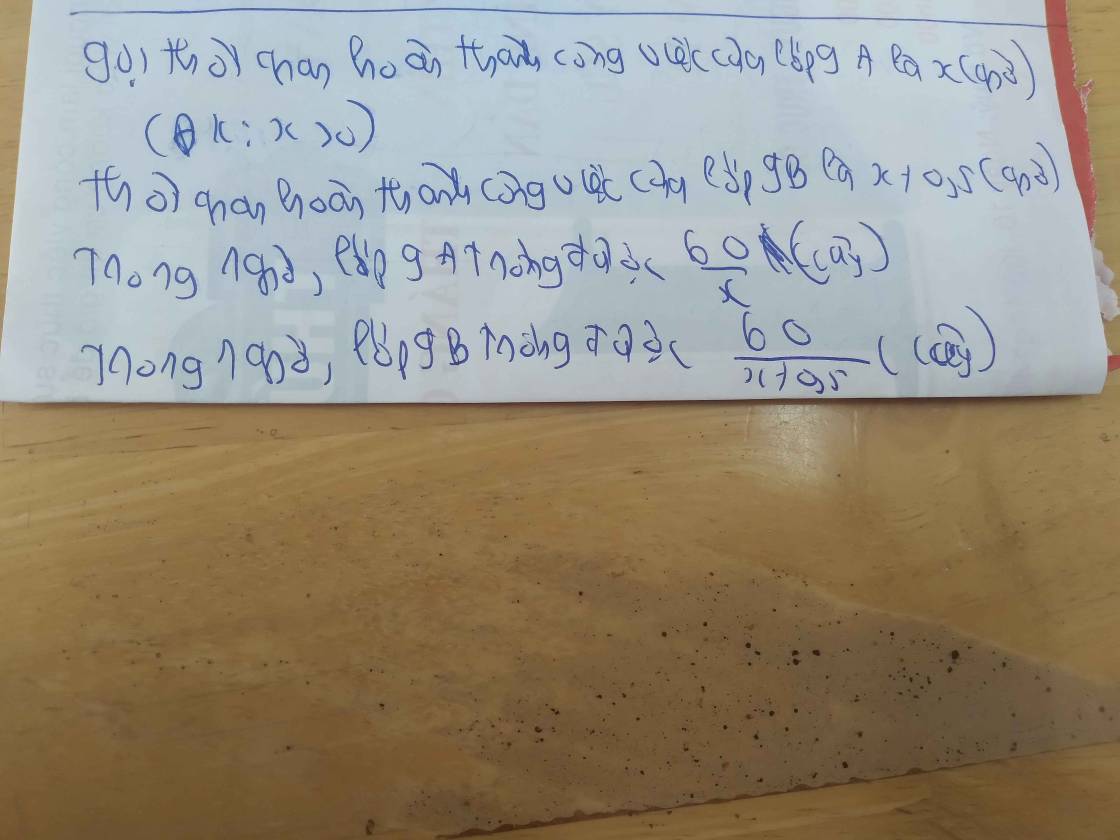 gọi thời gian hoàn thành công việc của lớp 9A là x(giờ)
(ĐK: x>0)
thời gian hoàn thành công việc của lớp 9B là x+0,5(giờ)
Trong 1 giờ, lớp 9A trồng được 60/x (cây)
Trong 1 giờ, lớp 9B trồng được 60/x+0,5 (cây)